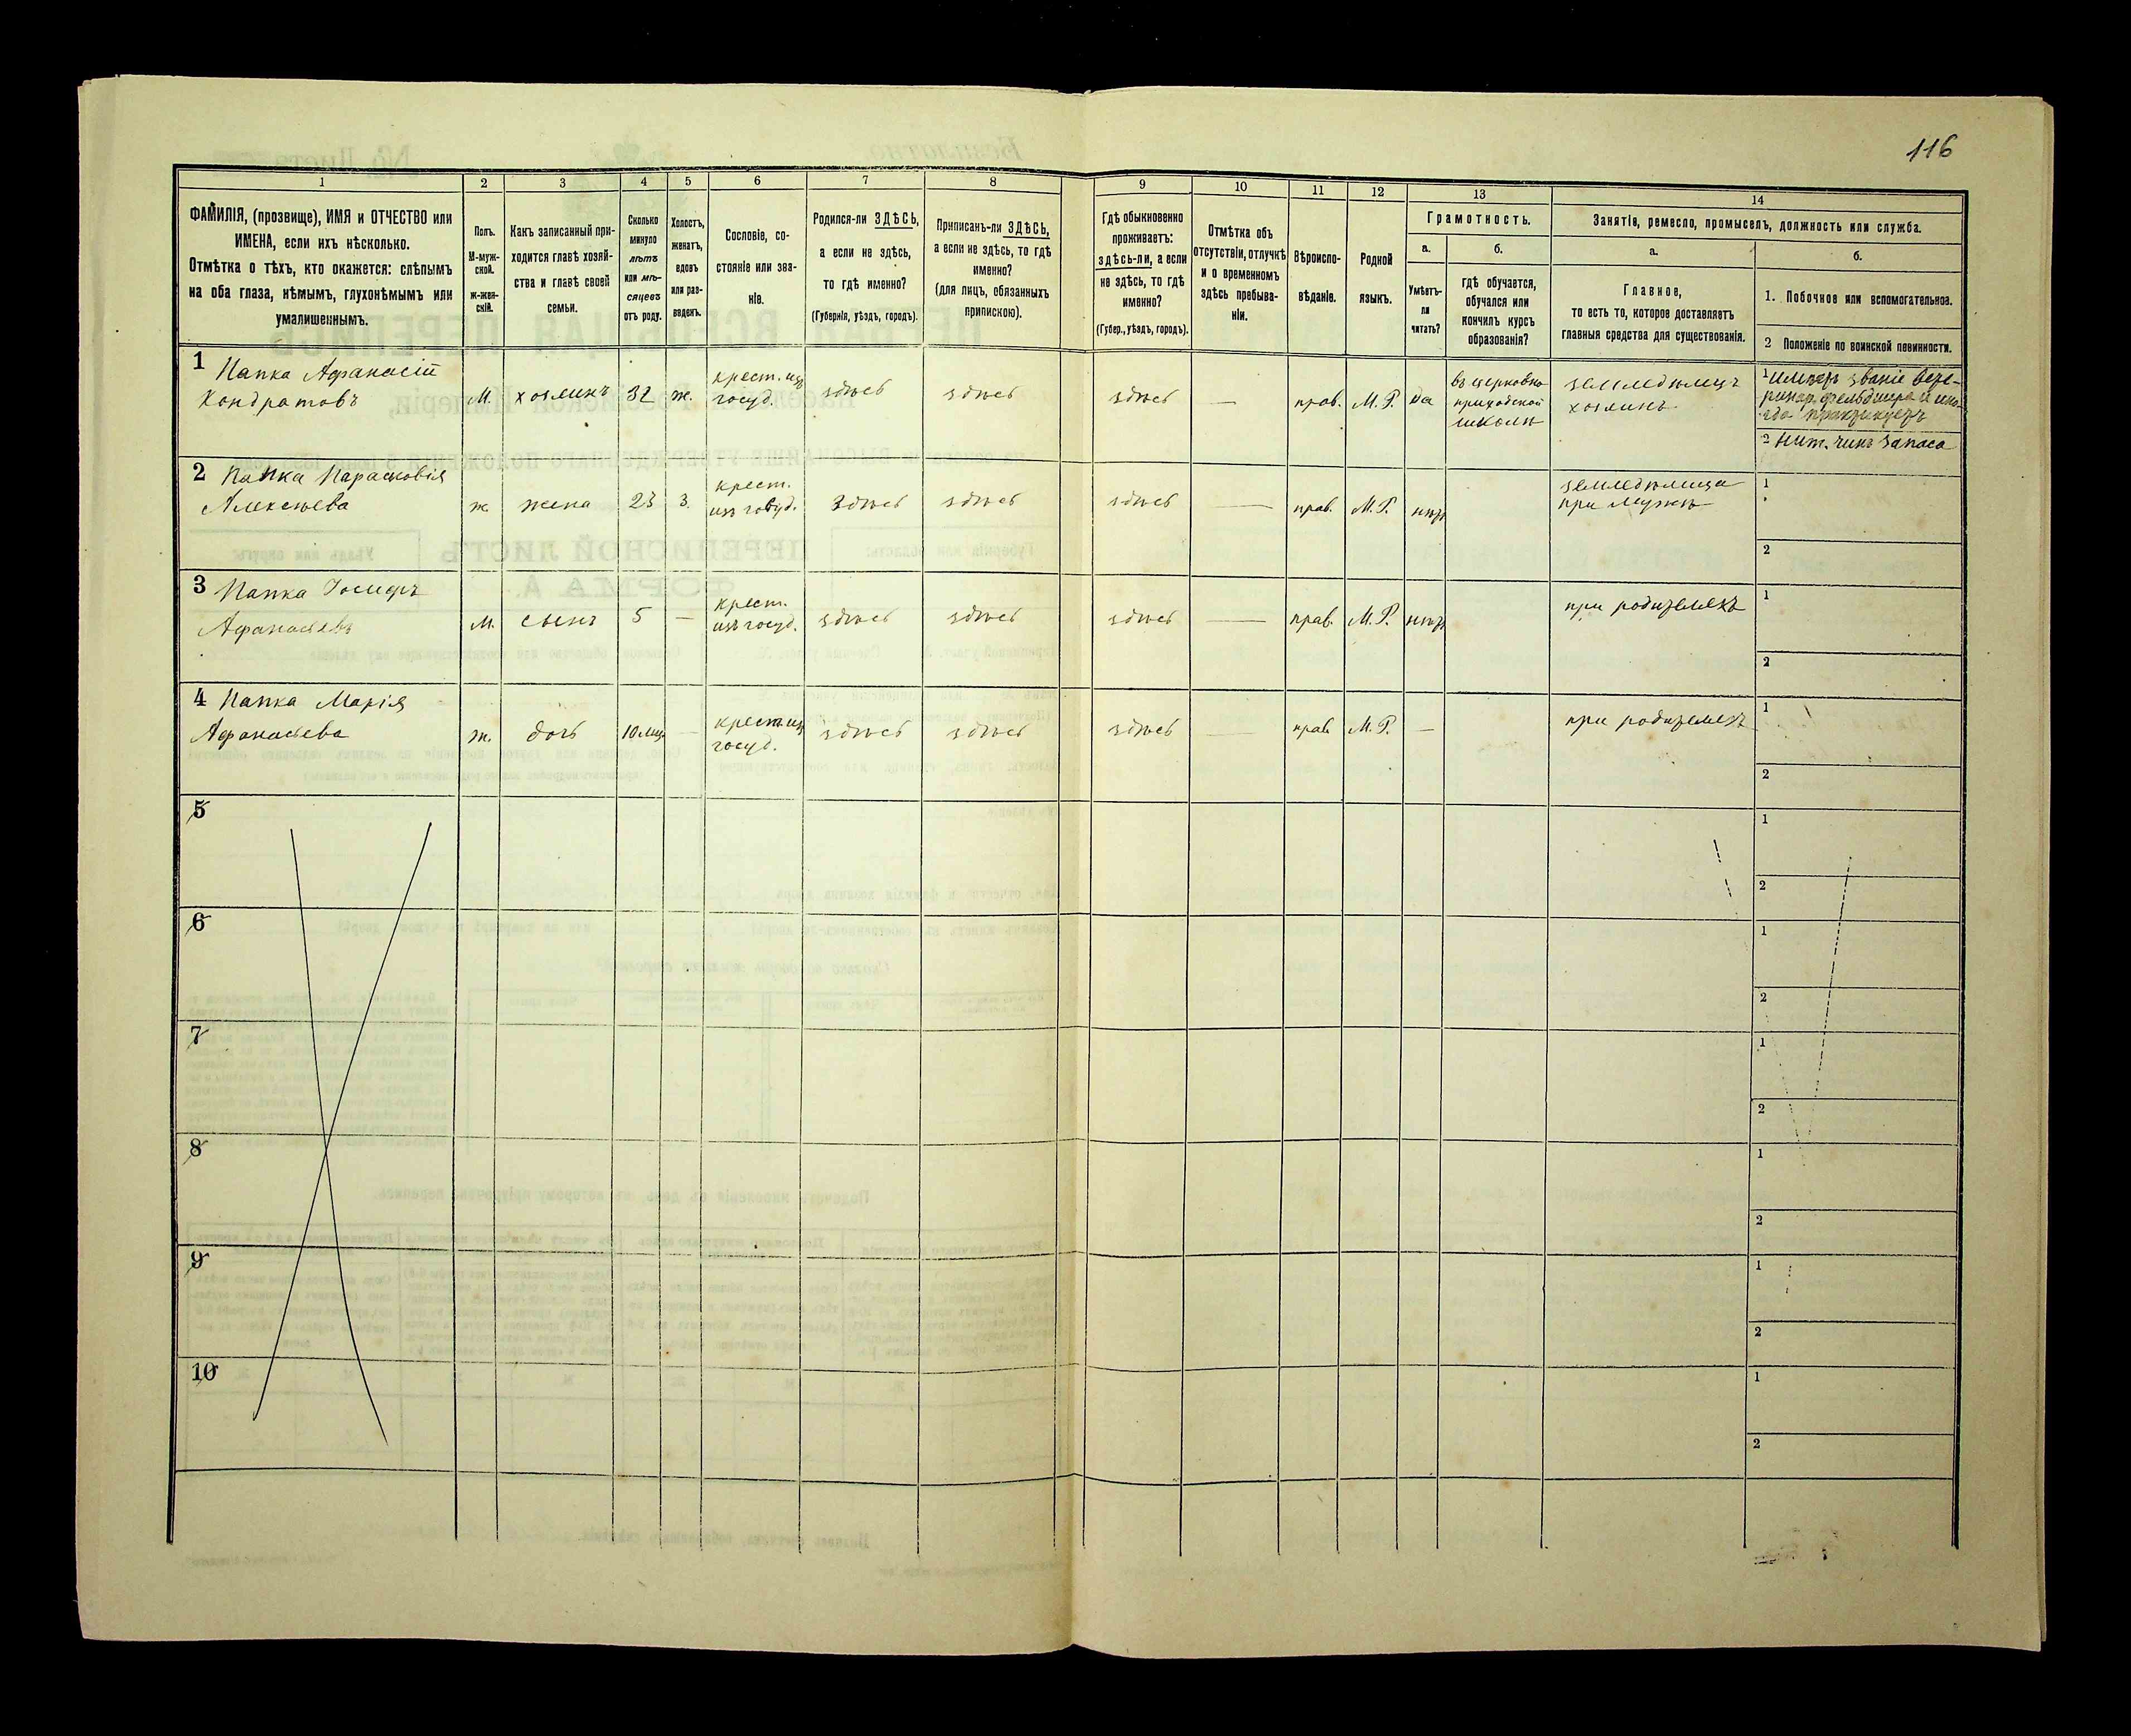 116
1
2
3
4
5
6
7
8
9
10
11
12
13
14
ФАМИЛІЯ, (прозвище), ИМЯ и ОТЧЕСТВО или
ИМЕНА, если ихъ нѣсколько.
Отмѣтка о тѣхъ, кто окажется: слѣпымъ
на оба глаза, нѣмымъ, глухонѣмымъ или
умалишеннымъ.
Полъ.
М-муж-
ской.
ж-жен-
скій.
Какъ записанный при-
ходится главѣ хозяй-
ства и главѣ своей
семьи.
Сколько
минуло
лѣтъ
или мѣ-
сяцевъ
отъ роду.
Холостъ,
женатъ,
вдовъ
или раз-
веденъ.
Сословіе, со-
стояніе или зва-
ніе.
Родился-ли ЗДѢСЬ,
а если не здѣсь,
то гдѣ именно?
(Губернія, уѣздъ, городъ).
Приписанъ-ли ЗДѢСЬ,
а если не здѣсь, то гдѣ
именно?
(для лицъ, обязанныхъ
припискою).
Гдѣ обыкновенно
проживаетъ:
здѣсь-ли, а если
не здѣсь, то гдѣ
именно?
(Губер., уѣздъ, городъ).
Отмѣтка объ
отсутствіи, отлучкѣ
и о временномъ
здѣсь пребыва-
ніи.
Вѣроиспо-
вѣданіе.
Родной
языкъ.
Грамотность.
а.
Умѣетъ-
ли
читать?
б.
гдѣ обучается,
обучался или
кончилъ курсъ
образованія?
Занятіе, ремесло, промыселъ, должность или служба.
а.
Главное,
то есть то, которое доставляетъ
главныя средства для существованія.
б.
1. Побочное или вспомогательное.
2 Положеніе по воинской повинности.
1 Папка Афанасій
Кондратовъ
М.
хозяинъ
32
ж.
крест. изъ
госуд.
здѣсь
здѣсь
здѣсь
—
прав.
М. Р.
да
въ церковно
приходской
школѣ
земледѣлецъ
хозяинъ
1 Имѣетъ званіе вете-
ринар. фельдшера и ино-
гда практикуетъ
2 Нит. чинъ запаса
2 Папка Парасковія
Алексѣева
ж.
жена
23
з.
крест.
изъ госуд.
здѣсь
здѣсь
здѣсь
—
прав.
М. Р.
нѣтъ
земледѣлица
при мужѣ
1
2
3 Папка Іосифъ
Афанасьевъ
М.
сынъ
5
—
крест.
изъ госуд.
здѣсь
здѣсь
здѣсь
—
прав.
М. Р.
нѣтъ
при родителяхъ
1
2
4 Папка Марія
Афанасьева
ж.
дочь
10 мѣц.
—
крест. изъ
госуд.
здѣсь
здѣсь
здѣсь
—
прав.
М. Р.
—
при родителяхъ
1
2
5
1
2
6
1
2
7
1
2
8
1
2
9
1
2
10
1
2